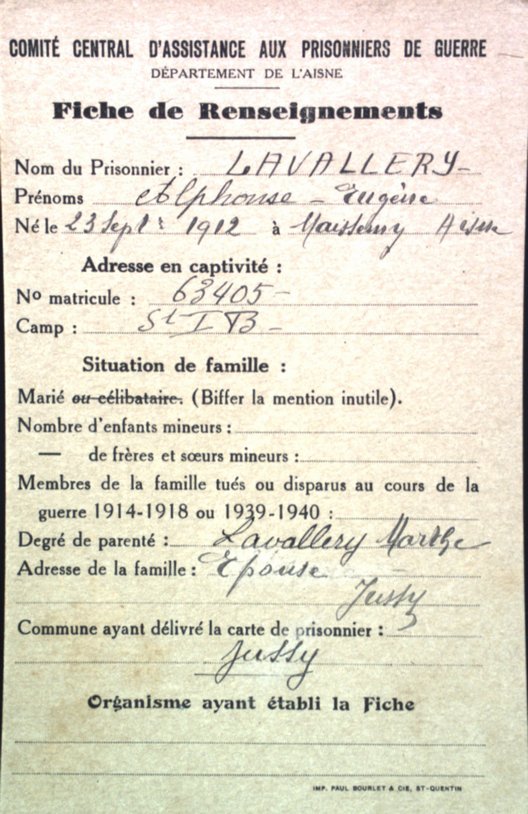 COMITÉ CENTRAL D'ASSISTANCE AUX PRISONNIERS DE GUERRE
DÉPARTEMENT DE L'AISNE
Fiche de Renseignements
Nom du Prisonnier : LAVALLERY-
Prénoms Alphonse - Eugène
Né le 23 Septe 1912 à Maissemy Aisne
Adresse en captivité :
No matricule : 63405-
Camp : St I B-
Situation de famille :
Marié ou célibataire. (Biffer la mention inutile).
Nombre d'enfants mineurs :
— de frères et sœurs mineurs :
Membres de la famille tués ou disparus au cours de la
guerre 1914-1918 ou 1939-1940 :
Degré de parenté : Lavallery Marthe
Adresse de la famille : Epouse
Jussy
Commune ayant délivré la carte de prisonnier :
Jussy
Organisme ayant établi la Fiche
IMP. PAUL BOURLET & CIE, ST-QUENTIN